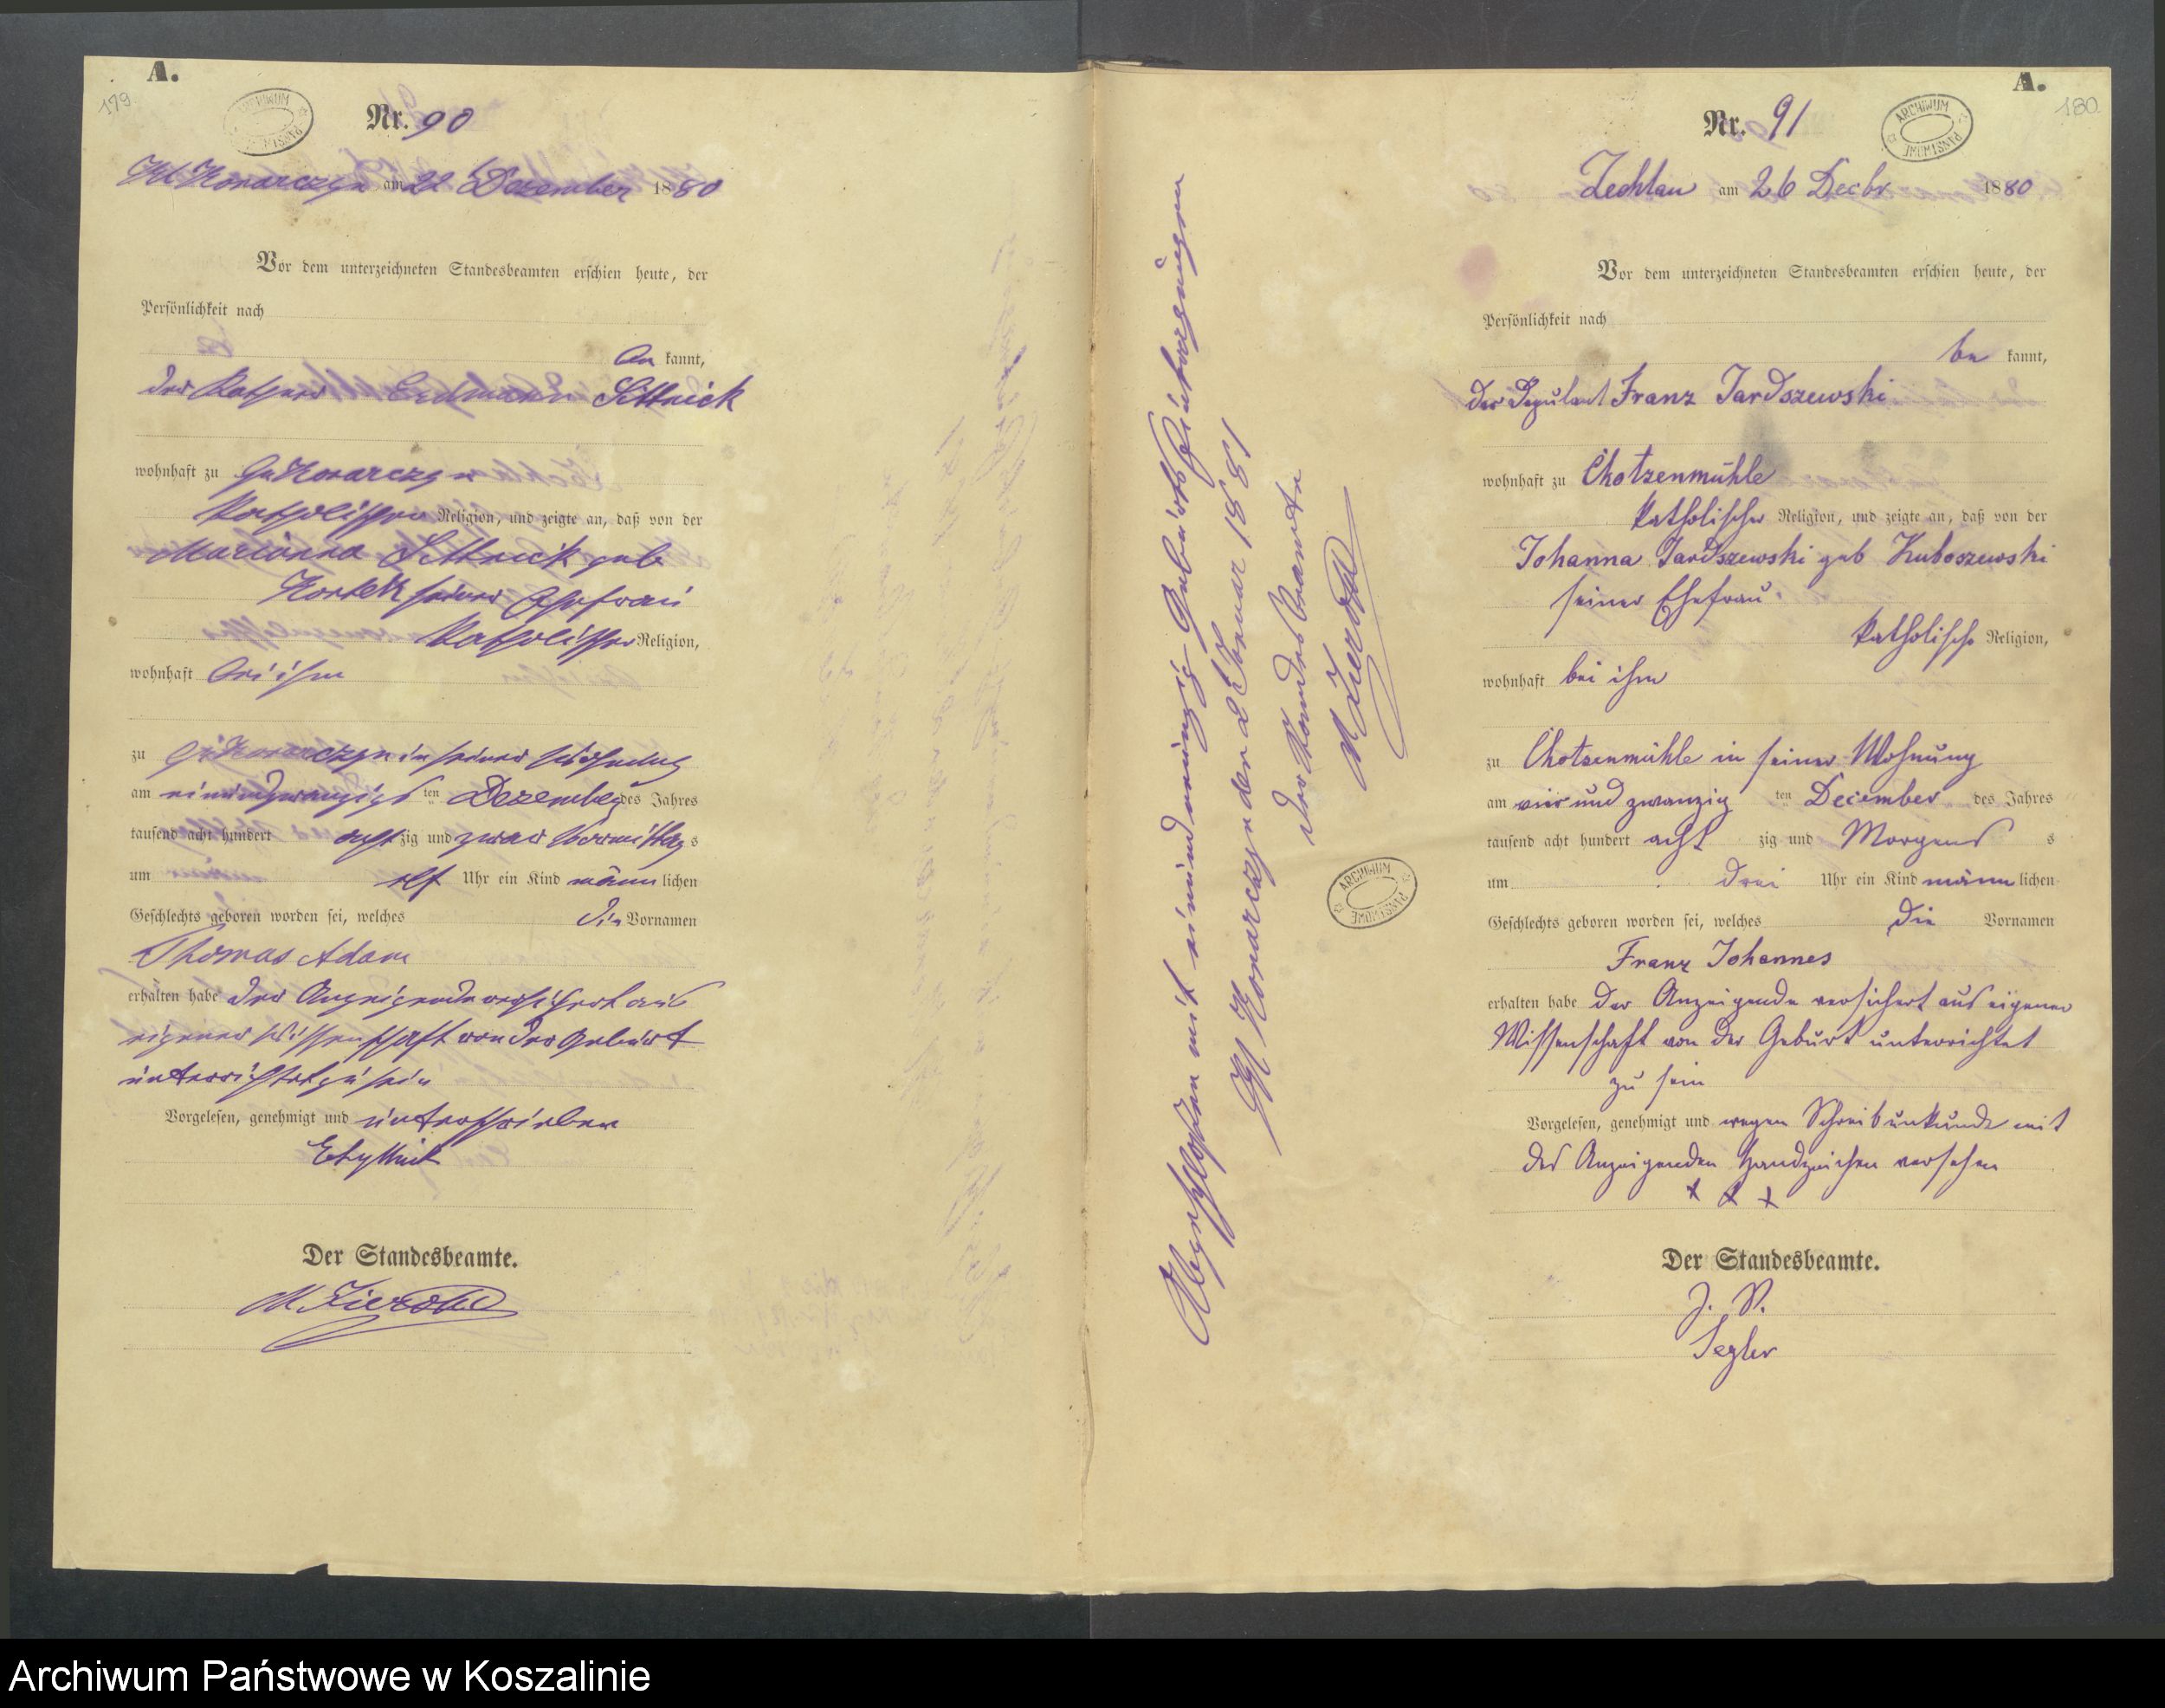 A.
179
ARCHIWUM PAŃSTWOWE
Nr. 90
Kl Konarczyn am 22 Dezember 1880
Vor dem unterzeichneten Standesbeamten erschien heute, der
Persönlichkeit nach
be kannt,
der Käthner Erdmann Sittnick
wohnhaft zu Gr Konarczyn
katholischer Religion, und zeigte an, daß von der
Marianna Sittnick geb
seiner Ehefrau
katholischer Religion,
wohnhaft bei ihm
zu Gr Konarczyn in seiner Wohnung
am einundzwanzigs ten Dezember des Jahres
tausend acht hundert acht zig und zwar Vormittag s
um elf Uhr ein Kind männ lichen
Geschlechts geboren worden sei, welches die Vornamen
Thomas Adam
erhalten habe der Anzeigende versichert aus
eigener Wissenschaft von der Geburt
unterrichtet zu sein
Vorgelesen, genehmigt und unterschrieben
Der Standesbeamte.
Abgeschlossen mit einundneunzig Geburtseintragungen
Kl Konarczyn den 2 Januar 1881
der Standesbeamte
ARCHIWUM PAŃSTWOWE
A.
180
Nr. 91
ARCHIWUM PAŃSTWOWE
Zechlau am 26 Decbr 1880
Vor dem unterzeichneten Standesbeamten erschien heute, der
Persönlichkeit nach
be kannt,
der Deputant Franz Jardszewski
wohnhaft zu Chotzenmühle
katholischer Religion, und zeigte an, daß von der
Johanna Jardszewski geb Kuboszewski
seiner Ehefrau
katholische Religion,
wohnhaft bei ihm
zu Chotzenmühle in seiner Wohnung
am vier und zwanzig ten December des Jahres
tausend acht hundert acht zig und Morgens s
um drei Uhr ein Kind männ lichen
Geschlechts geboren worden sei, welches die Vornamen
Franz Johannes
erhalten habe der Anzeigende versichert aus eigener
Wissenschaft von der Geburt unterrichtet
zu sein
Vorgelesen, genehmigt und wegen Schreibunkunde mit
des Anzeigenden Handzeichen versehen
+ + +
Der Standesbeamte.
J. V.
Segler
Archiwum Państwowe w Koszalinie